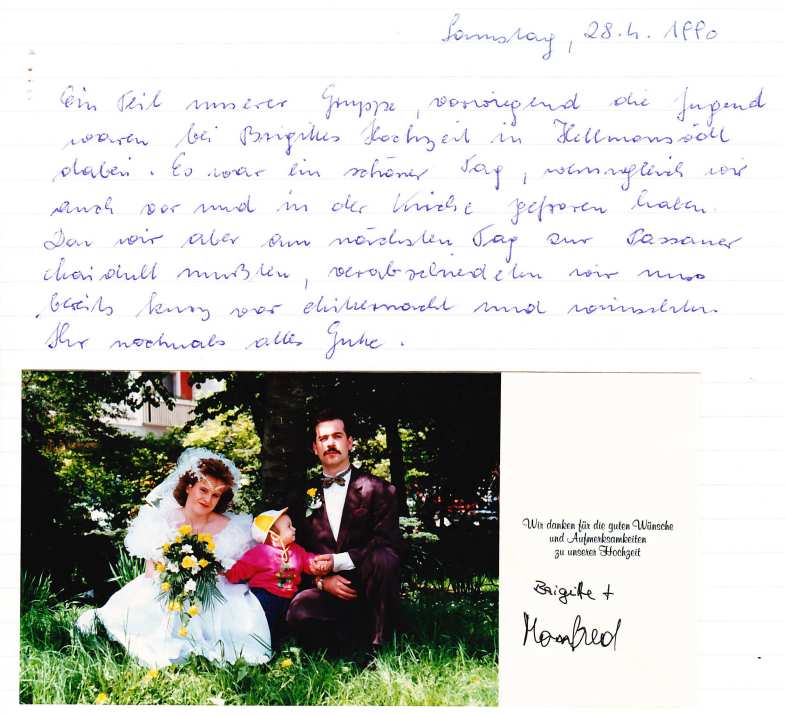 Samstag, 28.4. 1990
Ein Teil unserer Gruppe, vorwiegend die Jugend
waren bei Brigittes Hochzeit in Hellmonsödt
dabei. Es war ein schöner Tag, wenngleich wir
auch vor und in der Kirche gefroren haben.
Da wir aber am nächsten Tag zur Passauer
Maidult mußten, verabschiedeten wir uns
bereits kurz vor Mitternacht und wünschten
Ihr nochmals alles Gute.
Wir danken für die guten Wünsche
und Aufmerksamkeiten
zu unserer Hochzeit
Brigitte +
Manfred